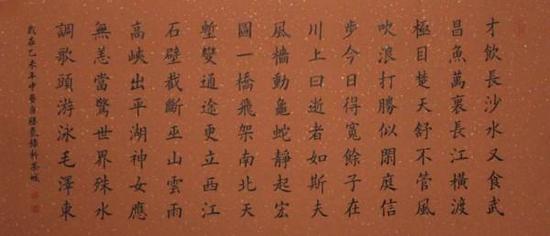 才飲長沙水又食武
昌魚萬裏長江橫渡
極目楚天舒不管風
吹浪打勝似閑庭信
步今日得寬餘子在
川上曰逝者如斯夫
風檣動龜蛇靜起宏
圖一橋飛架南北天
塹變通途更立西江
石壁截斷巫山雲雨
高峽出平湖神女應
無恙當驚世界殊水
調歌頭游泳毛澤東
歲在乙未年中